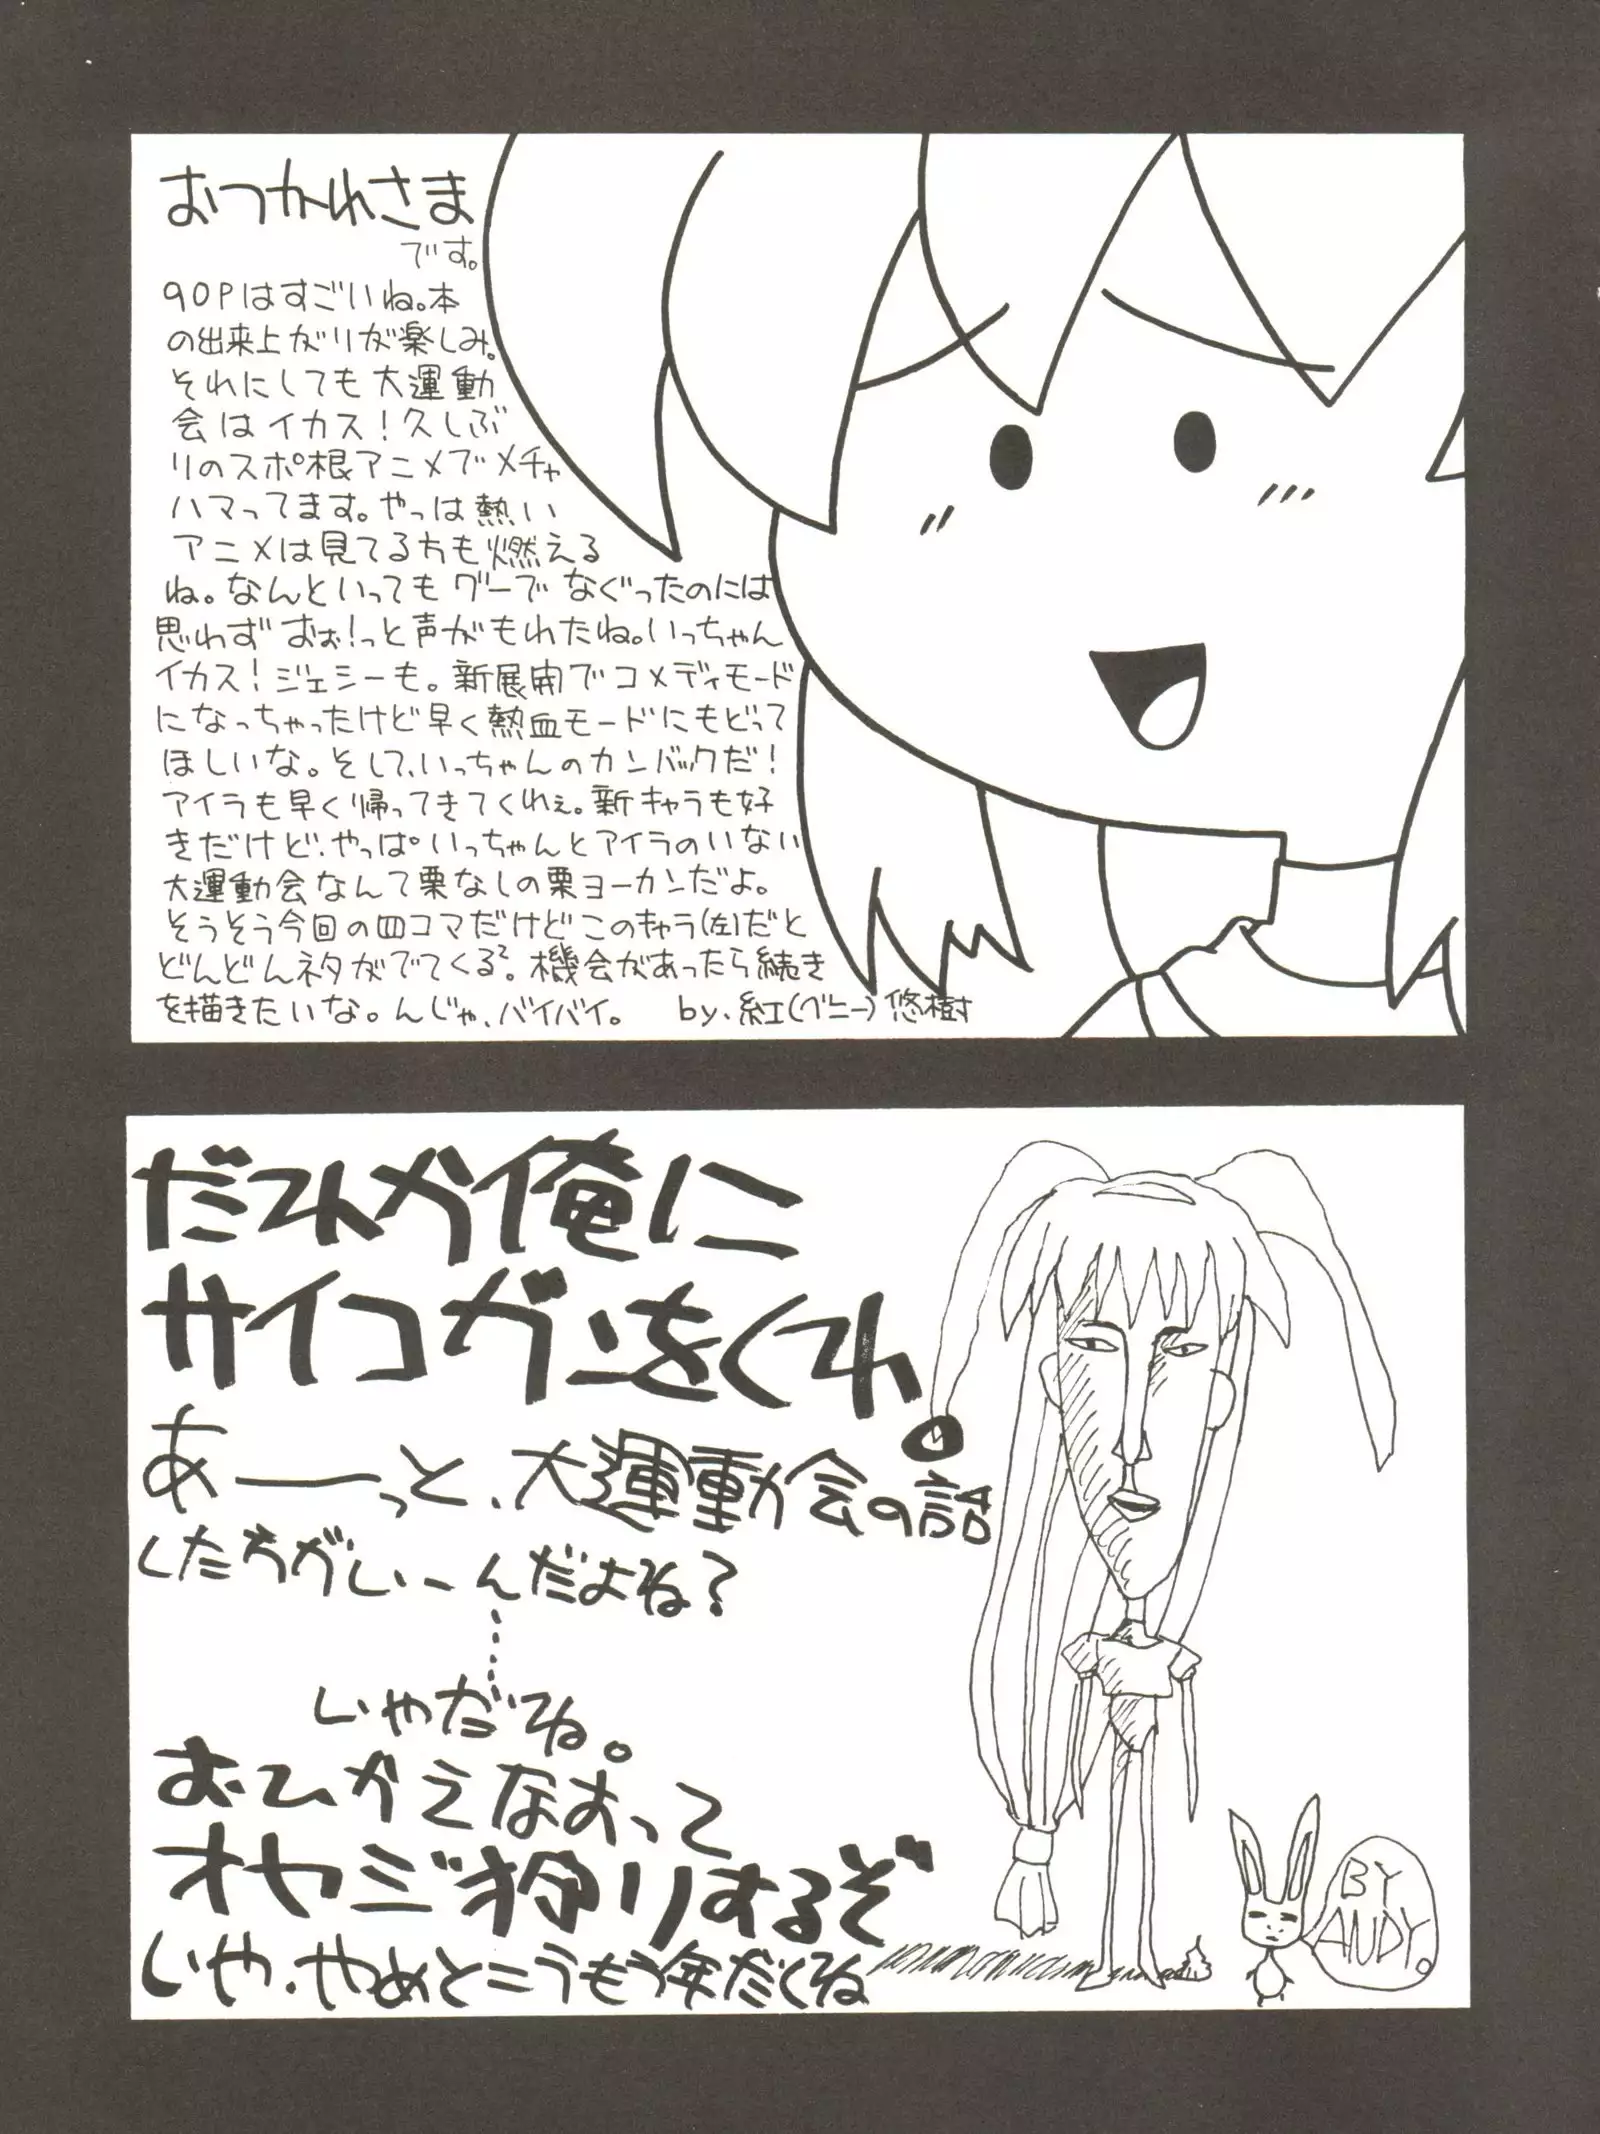 おつかれさま
です。
90Pはすごいね。本
の出来上がりが楽しみ。
それにしても大運動
会はイカス!久しぶ
りのスポ根アニメでメチャ
ハマってます。やっぱ熱い
アニメは見てる方も燃える
ね。なんといってもグーでなぐったのには
思わずおぉ!っと声がもれたね。いっちゃん
イカス!ジェシーも。新展開でコメディモード
になっちゃったけど早く熱血モードにもどって
ほしいな。そして、いっちゃんのカンバックだ!
アイラも早く帰ってきてくれぇ。新キャラも好
きだけど、やっぱいっちゃんとアイラのいない
大運動会なんて栗なしの栗ヨーカンだよ。
そうそう今回の四コマだけどこのキャラ(左)だと
どんどんネタがでてくる²。機会があったら続き
を描きたいな。んじゃ、バイバイ。 by.紅(グニー)悠樹
だれか俺に
サイコガンをくれ。
あーーっと、大運動会の話
したろがいーんだよね?
いやだね。
おひかえなすって
オヤジ狩りするぞ
いや、やめとこうもう年だくね
BY
ANDY.